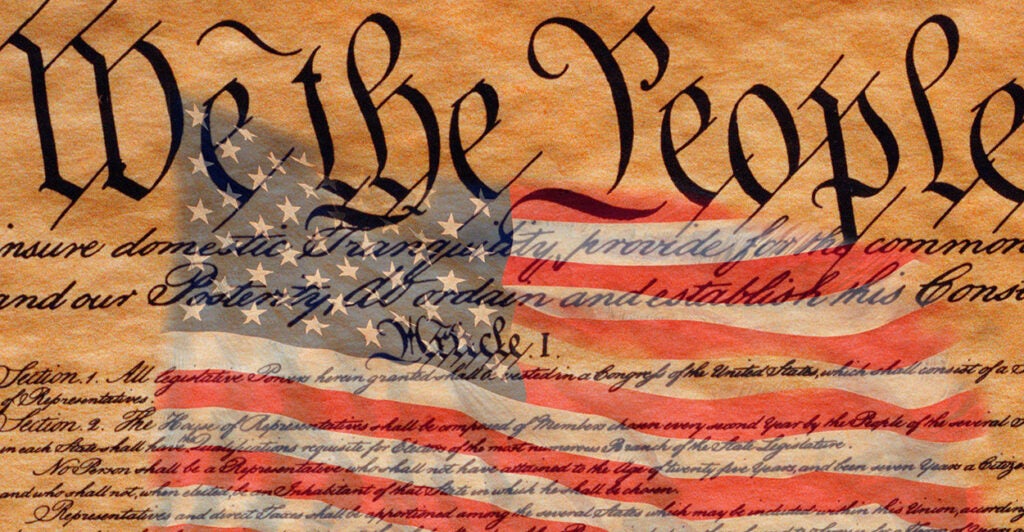 We the People
insure domestic Tranquility, provide for the common
and our Posterity, do ordain and establish this Cons
Article I.
Section. 1. All legislative Powers herein granted shall be vested in a Congress of the United States, which shall consist of a S
of Representatives.
Section. 2. The House of Representatives shall be composed of Members chosen every second Year by the People of the several
in each State shall have the Qualifications requisite for Electors of the most numerous Branch of the State Legislature.
No Person shall be a Representative who shall not have attained to the Age of twenty five Years, and been seven Years a Citizen
and who shall not, when elected, be an Inhabitant of that State in which he shall be chosen.
Representatives and direct Taxes shall be apportioned among the several States which may be included within this Union, according